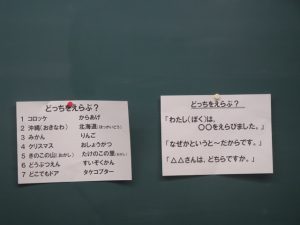 どっちをえらぶ？
1 コロッケ からあげ
2 沖縄(おきなわ) 北海道(ほっかいどう)
3 みかん りんご
4 クリスマス おしょうがつ
5 きのこの山(おかし) たけのこの里(おかし)
6 どうぶつえん すいぞくかん
7 どこでもドア タケコプター
どっちをえらぶ？
「わたし(ぼく)は、
〇〇をえらびました。」
「なぜかというと～だからです。」
「△△さんは、どちらですか。」